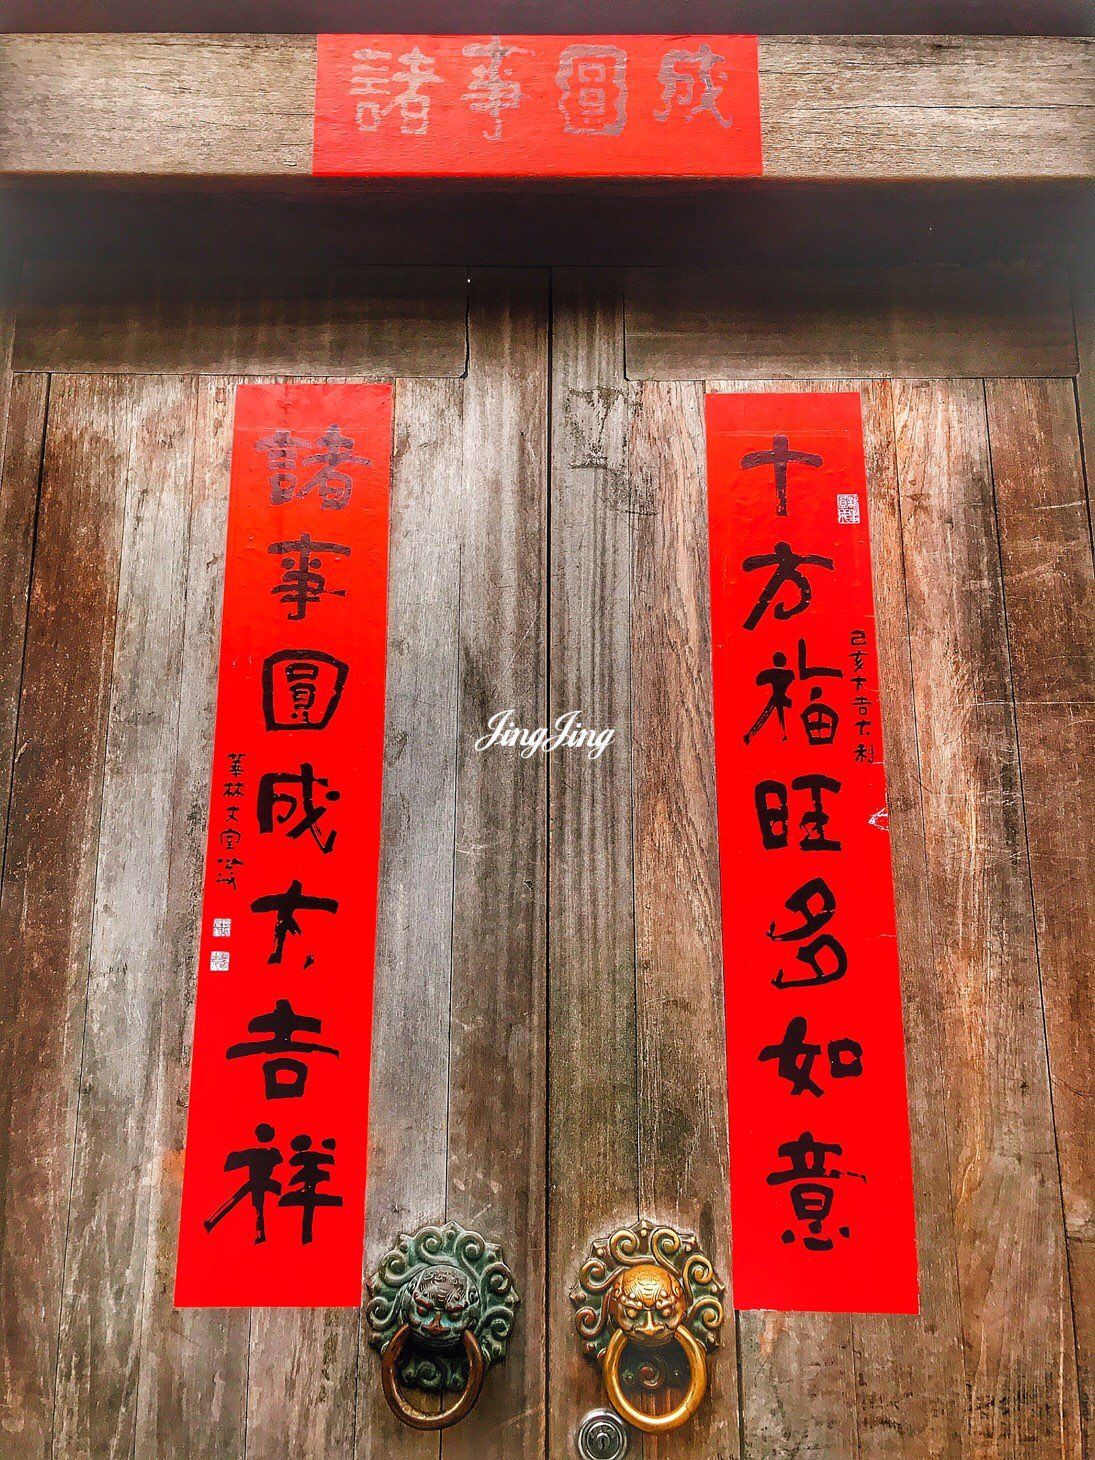 諸事圓成
十方福旺多如意
己亥大吉大利
諸事圓成大吉祥
華林
JingJing